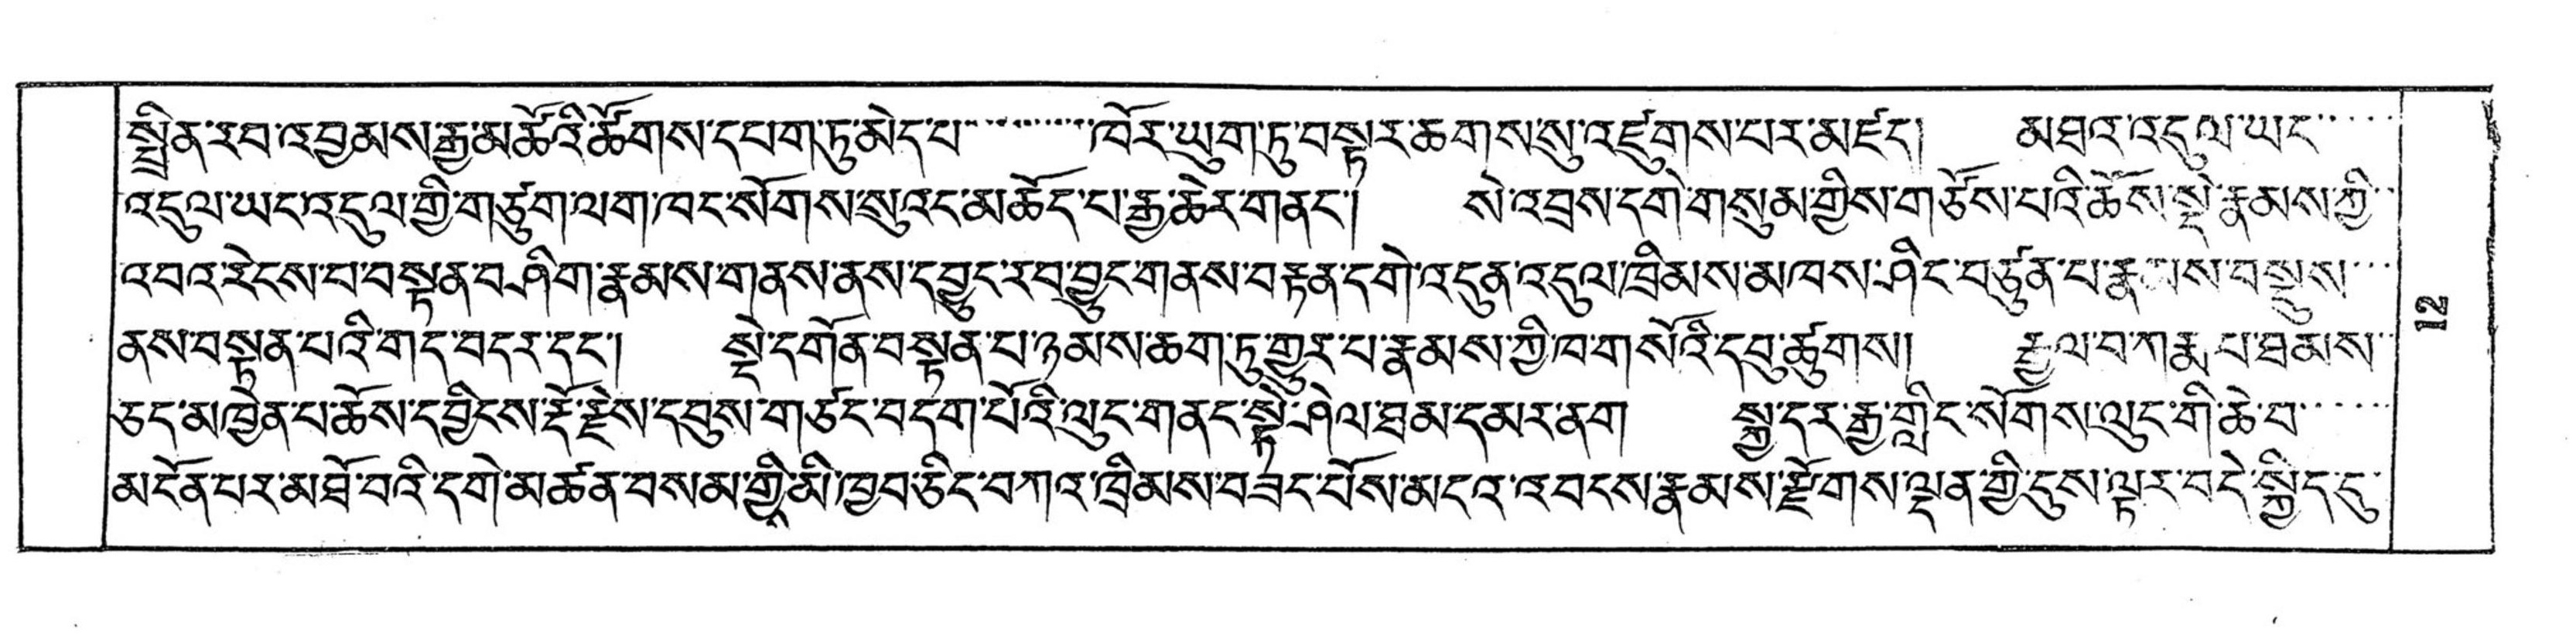 སྤྲིན་རབ་འབྱམས་རྒྱ་མཚོའི་ཚོགས་དཔག་ཏུ་མེད་པ་་་་་་་་་ཁོར་ཡུག་ཏུ་བསྟར་ཆགས་སུ་འཛུགས་པར་མཛད། མཐའ་འདུལ་ཡང་་་་་
འདུལ་ཡང་འདུལ་གྱི་གཙུག་ལག་ཁང་སོགས་སུ་འང་མཆོད་པ་རྒྱ་ཆེར་གནང་། སེ་འབྲས་དགེ་གསུམ་གྱིས་གཙོས་པའི་ཆོས་སྡེ་རྣམས་ཀྱི་་
འབའ་རེངས་བ་བསྟན་བཤིག་རྣམས་གནས་ནས་དབྱུང་རབ་བྱུང་གནས་བརྟན་དགེ་འདུན་འདུལ་ཁྲིམས་མཁས་ཤིང་བཙུན་པ་རྣམས་བསྡུས་་་
ནས་བསྟན་པའི་གད་བདར་དང་། སྡེ་དགོན་བསྟན་པ་ཉམས་ཆག་ཏུ་གྱུར་པ་རྣམས་ཀྱི་ཁ་གསོའི་དབུ་ཚུགས། རྒྱལ་བ་ཀརྨ་པ་ཐམས་
ཅད་མཁྱེན་པ་ཆོས་དབྱིངས་རྡོ་རྗེས་དབུས་གཙང་བདག་པོའི་ལུང་གནང་སྟེ་ཤེལ་ཐམ་དམར་ནག སྐྱ་དར་རྒྱ་གླིང་སོགས་ལུང་གི་ཆེ་བ་་་་་
མངོན་པར་མཐོ་བའི་དགེ་མཚན་བསམ་གྱི་མི་ཁྱབ་ཅིང་བཀའ་ཁྲིམས་བཟང་པོས་མངའ་འབངས་རྣམས་རྫོགས་ལྡན་གྱི་དུས་ལྟར་བདེ་སྐྱིད་དུ་